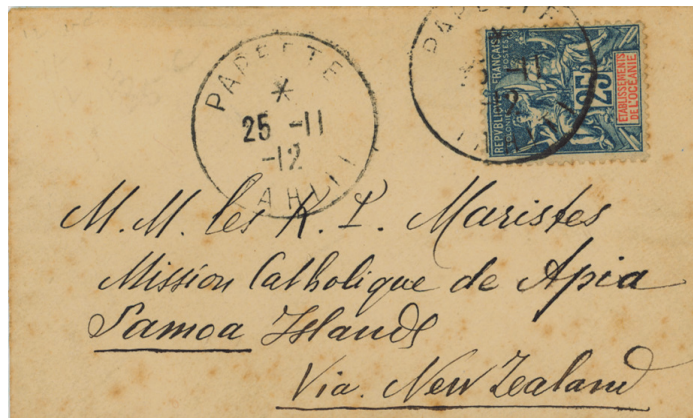 PAPEETE
25 -11
-12
TAHITI
PAPEETE
RÉPUBLIQUE FRANÇAISE
COLONIES
POSTES
25
ÉTABLISSEMENTS
DE L'OCÉANIE
M. M. les R. P. Maristes
Mission Catholique de Apia
Samoa Islands
Via. New Zealand